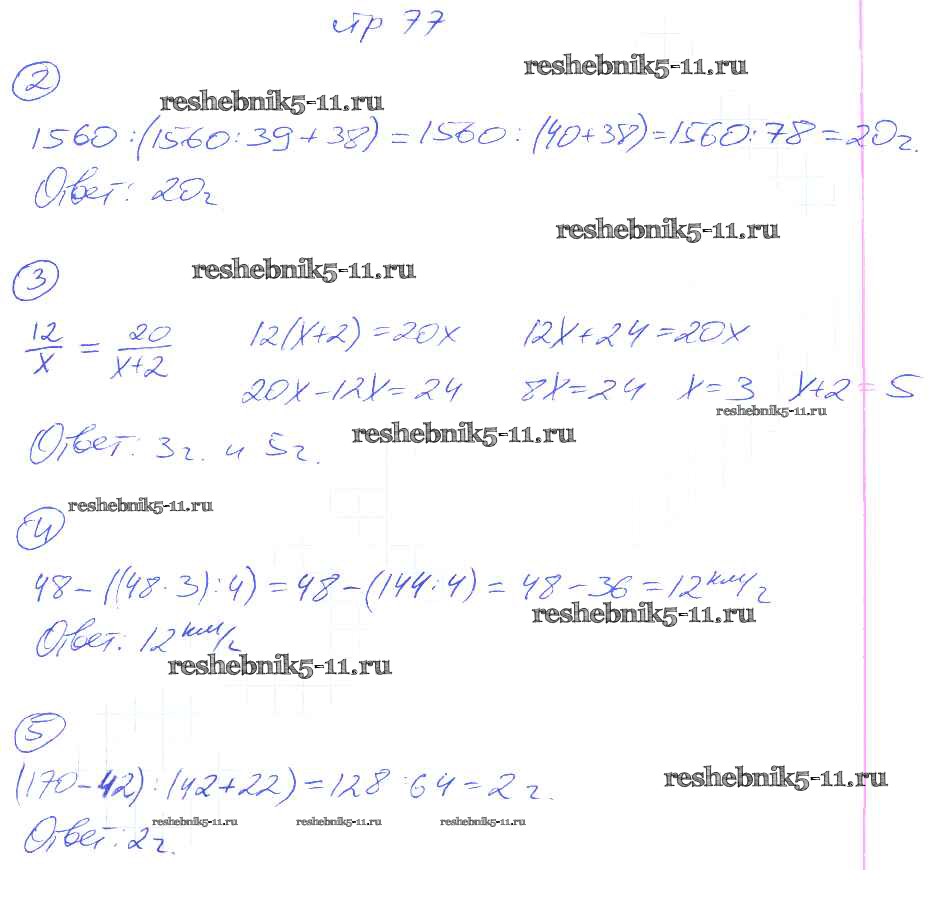 стр 77
reshebnik5-11.ru
2
reshebnik5-11.ru
1560 : (1560 : 39 + 38) = 1560 : (40 + 38) = 1560 : 78 = 20 ч.
Ответ: 20 ч
reshebnik5-11.ru
reshebnik5-11.ru
3
12/x = 20/x+2 12(x+2) = 20x 12x + 24 = 20x
20x - 12x = 24 8x = 24 x = 3 x+2 = 5
reshebnik5-11.ru
reshebnik5-11.ru
Ответ: 3 ч. и 5 ч.
reshebnik5-11.ru
4
48 - ((48 · 3) : 4) = 48 - (144 : 4) = 48 - 36 = 12 км/ч
reshebnik5-11.ru
Ответ: 12 км/ч
reshebnik5-11.ru
5
(170 - 42) : (42 + 22) = 128 : 64 = 2 ч.
reshebnik5-11.ru
reshebnik5-11.ru reshebnik5-11.ru reshebnik5-11.ru
Ответ: 2 ч.